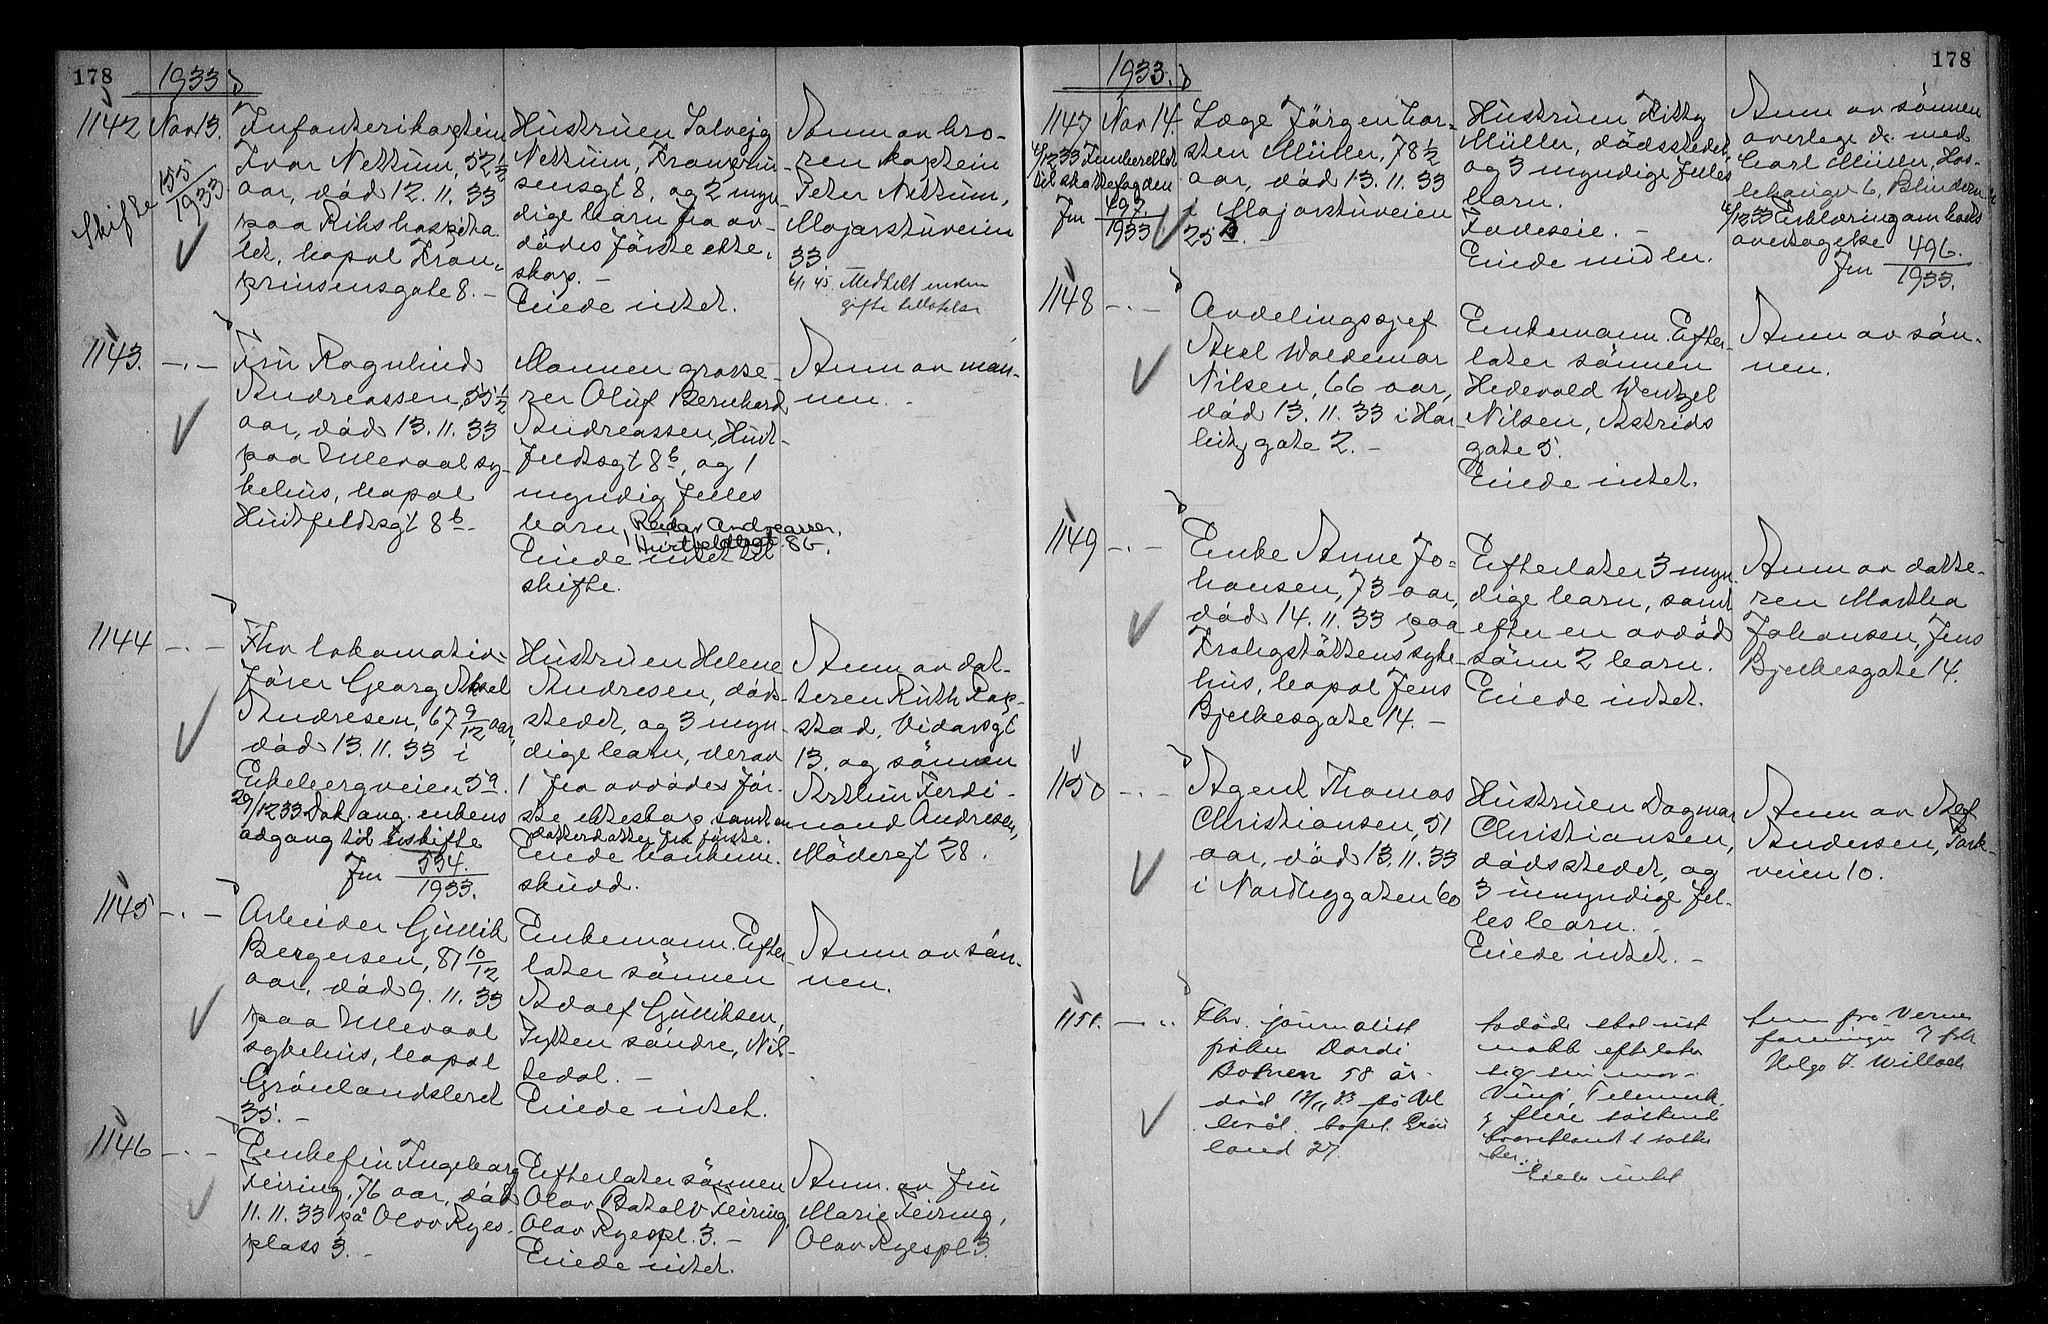 178
1933
1142
Nov 13.
Skifte 155
1933
Infanterikaptein
Ivar Nettum, 52 1/2
aar, död 12.11.33
paa Rikshospita
let, bopæl Kron,
prinsensgate 8. -
Hustruen Solveig
Nettum, Kronprin
sensgt 8, og 2 myn
dige barn fra av-
dödes förste ekte,
skap. -
Eiede intet.
Anm av bro-
ren kaptein
Peter Nettum,
Majorstuveien
33
Meddelt
gifte
1143.
- . -
Fru Ragnhild
Andreassen, 55 1/2
aar, död 13.11.33
paa Ullevaal sy-
kehus, bopæl
Huitfeldtsgt 8b -
Mannen grosse-
rer Oluf Bernhard
Andreassen, Huit-
feldtsgt 8b, og 1
myndig felles
barn, Reidar Andreassen,
Huitfeldtsgt. 8b.
Eiede intet til
skifte.
Anm av man-
nen. -
1144
- . -
Fhv lokomotiv,
förer Georg Aksel
Andresen, 67 9/12 aar,
död 13.11.33 i
Ekebergveien 5a.
29/12 33 Dok ang. enkens
adgang til uskifte
Jnr 534.
1933.
Hustruen Helene
Andresen, döds-
stedet, og 3 myn
dige barn, derav
1 fra avdödes för-
ste ekteskap samt en
datterdatter fra förste.
Eiede
skudd.
Anm av dat-
teren Ruth
stad, Vidarsgt
13. og sönnen
Arthur Ferdi-
nand Andresen,
Mödregt 28.
1145
- . -
Arbeider Gullik
Bergersen, 81 10/12
aar, död 9.11.33
paa Ullevaal
sykehus, bopæl
Grönlandsleret
35. -
Enkemann. Efter
later sönnen
Adolf Gulliksen,
söndre, Nit-
tedal. -
Eiede intet.
Anm av sön-
nen.
1146
- . -
Enkefru Ingeborg
Feiring, 76 aar, död
11.11.33 på Olav Ryes-
plass 3. -
Efterlater sönnen
Olav Feiring,
Olav Ryespl. 3. -
Eiede intet.
Anm. av fru
Marie Feiring,
Olav Ryespl 3.
178
1933.
1147
Nov 14.
til skattefogden
Jnr 497
1933
Læge Jörgen Tor-
sten Müller, 78 1/2
aar, död 13.11.33
i Majorstuveien
25
Hustruen Kitty
Müller, dödsstedet,
og 3 myndige felles
barn.
Eiede midler.
Anm av sönnen
overlege dr. med
Carl Müller,
Blindern
12 33 Erklæring om
overtagelse
Jnr 496.
1933.
1148
- . -
Avdelingssjef
Axel Woldemar
Nilsen, 66 aar,
död 13.11.33 i Har-
bitzgate 2. -
Enkemann. Efter-
later sönnen
Hedevold Wentzel
Nilsen, Astrids
gate 5.
Eiede intet.
Anm av sön-
nen.
1149
- . -
Enke Anne Jo-
hansen, 73 aar,
död 14.11.33 paa
Krohgstöttens syke-
hus, bopæl Jens
Bjelkesgate 14. -
Efterlater 3 myn-
dige barn, samt
efter en avdöd
sönn 2 barn.
Eiede intet.
Anm av datte-
ren Martha
Johansen, Jens
Bjelkesgate 14.
1150
- . -
Agent Thomas
Christiansen, 51
aar, död 13.11.33
i Nordbygaten 60
Hustruen Dagmar
Christiansen,
dödsstedet, og
3 umyndige fel-
les barn. -
Eiede intet. -
Anm av Axel
Andersen, Park-
veien 10.
1151.
- . .
Fhv. journalist
fröken Dordi
58 år.
död på Ul
levål. bopel. Grön
land 27.
efterlater
sig sin mor -
Vinje, Telemark,
og flere söskend
Eiede intet
Anm fra Verne
foreningen
Helge J. Willoch